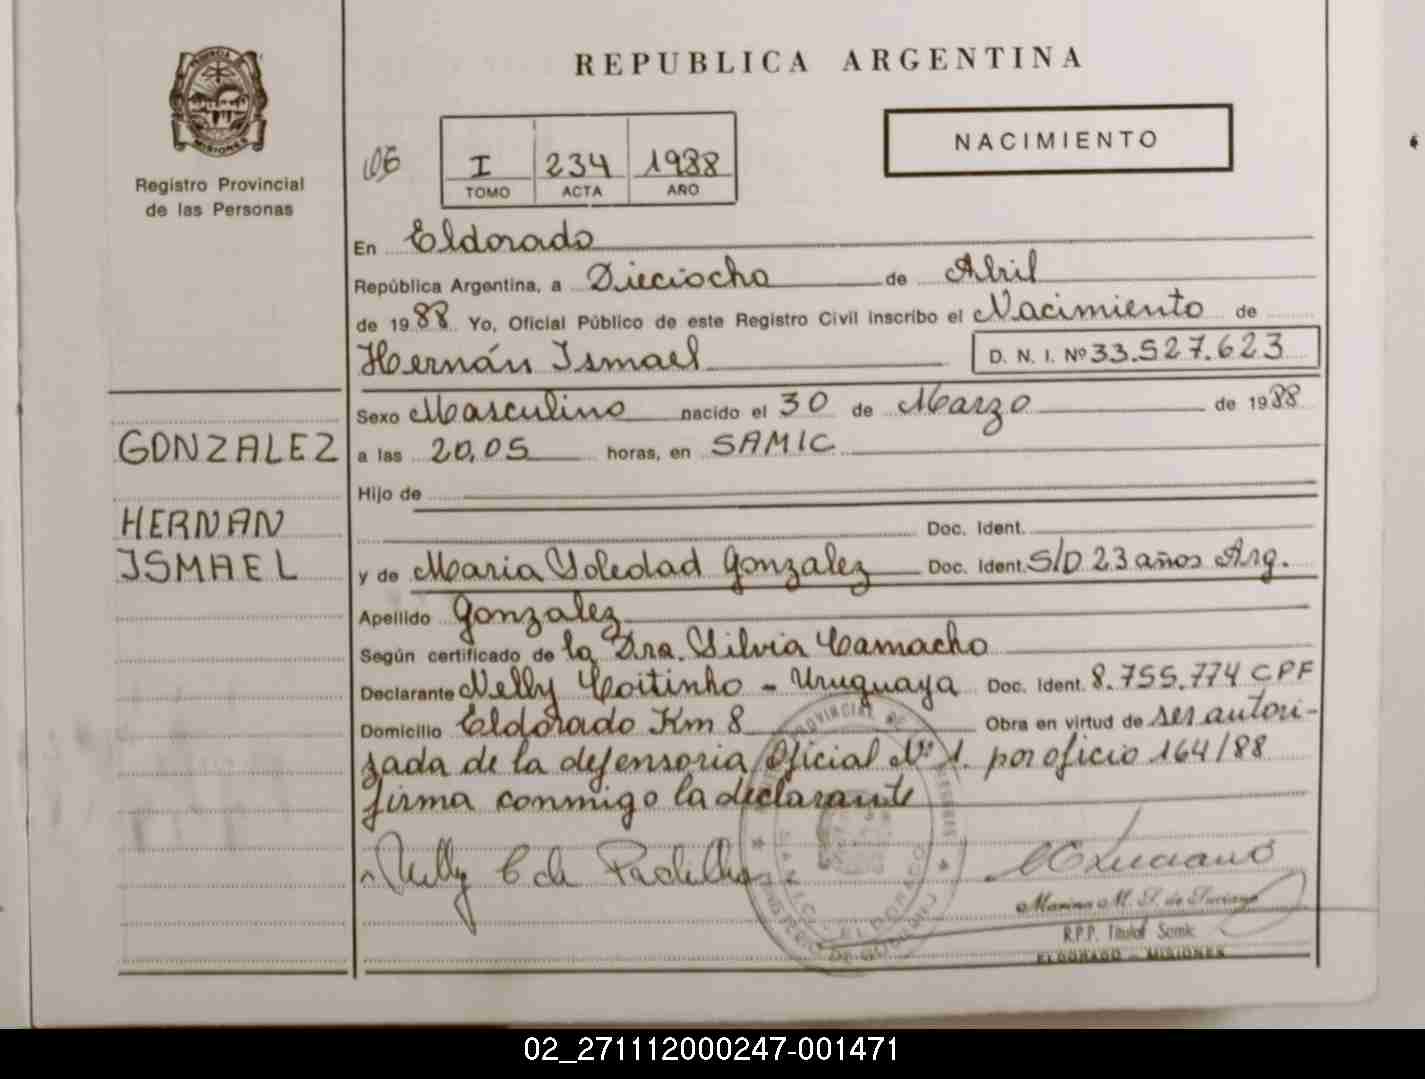 REPUBLICA ARGENTINA
PROVINCIA DE
MISIONES
Registro Provincial
de las Personas
NACIMIENTO
I 234 1988
TOMO ACTA AÑO
En Eldorado
República Argentina, a Dieciocho de Abril
de 1988 Yo, Oficial Público de este Registro Civil inscribo el Nacimiento de
Hernán Ismael D. N. I. Nº 33.527.623
Sexo Masculino nacido el 30 de Marzo de 1988
GONZALEZ
a las 20,05 horas, en SAMIC
Hijo de
HERNAN
Doc. Ident.
ISMAEL
y de Maria Soledad Gonzalez Doc. Ident. S/D 23 años Arg.
Apellido Gonzalez
Según certificado de la Dra. Silvia Camacho
Declarante Nelly Coitinho - Uruguaya Doc. Ident. 8.755.774 CPF
Domicilio Eldorado Km 8 Obra en virtud de ser autori-
zada de la defensoria Oficial Nº 1. por oficio 164/88
firma conmigo la declarante
Nelly C de Padilha
Marina M. S. de Luciano
R.P.P. Titular Samic
ELDORADO - MISIONES
02_271112000247-001471